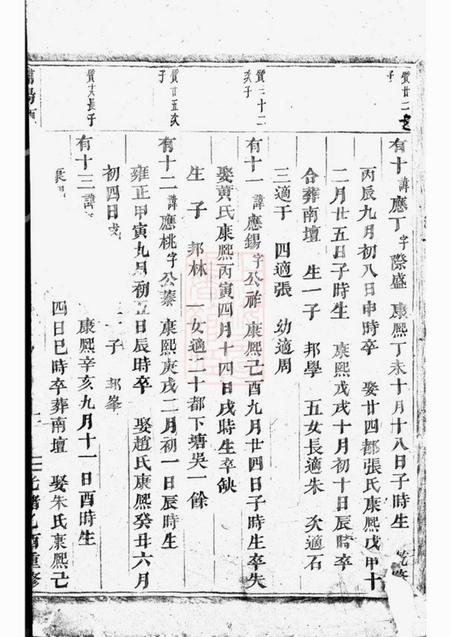 質廿二
子
有十 諱應丁 字際盛 康熙丁未十月十八日子時生
丙辰九月初八日申時卒 娶廿四都張氏康熙戊申十
二月廿五日子時生 康熙戊戌十月初十日辰時卒
合葬南壇 生一子 邦學 五女長適朱 次適石
三適于 四適張 幼適周
質三十二
次子
有十一 諱應錫 字公祚 康熙己酉九月廿四日子時生卒失
娶黃氏康熙丙寅四月十四日戌時生卒缺
生 子 邦林 一女適三十都下塘吳一餘
質廿五次
子
有十二 諱應桃 字公蓁 康熙庚戌二月初一日辰時生
雍正甲寅九月初五日辰時卒 娶趙氏康熙癸丑六月
初四日 子 邦峯
長子
有十三 諱 康熙辛亥九月十一日酉時生
四日巳時卒葬南壇 娶朱氏康熙己
光緒乙酉重修